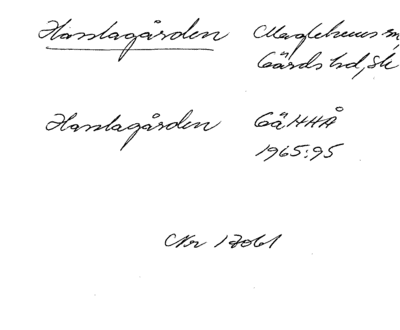 Haslagården Maglehems sn,
Gärds hd, Sk
Haslagården GäHHÅ
1965:95
Nr 17061